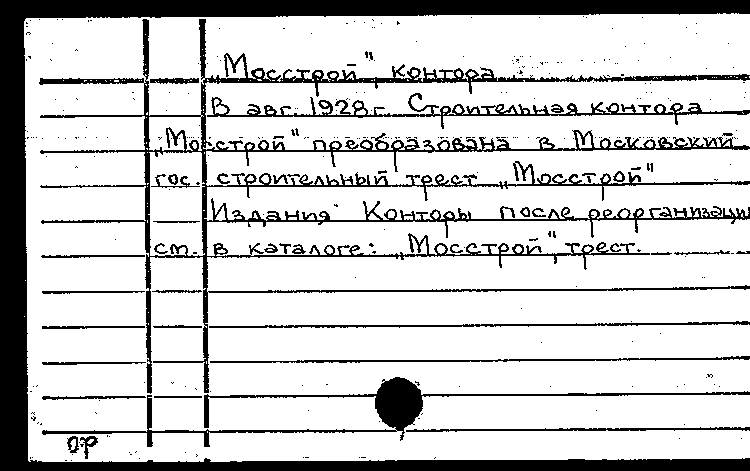 „Мосстрой", контора
В авг. 1928 г. Строительная контора
„Мосстрой" преобразована в Московский
гос. строительный трест „Мосстрой"
Издания Конторы после реорганизации
см. в каталоге: „Мосстрой", трест.
ор